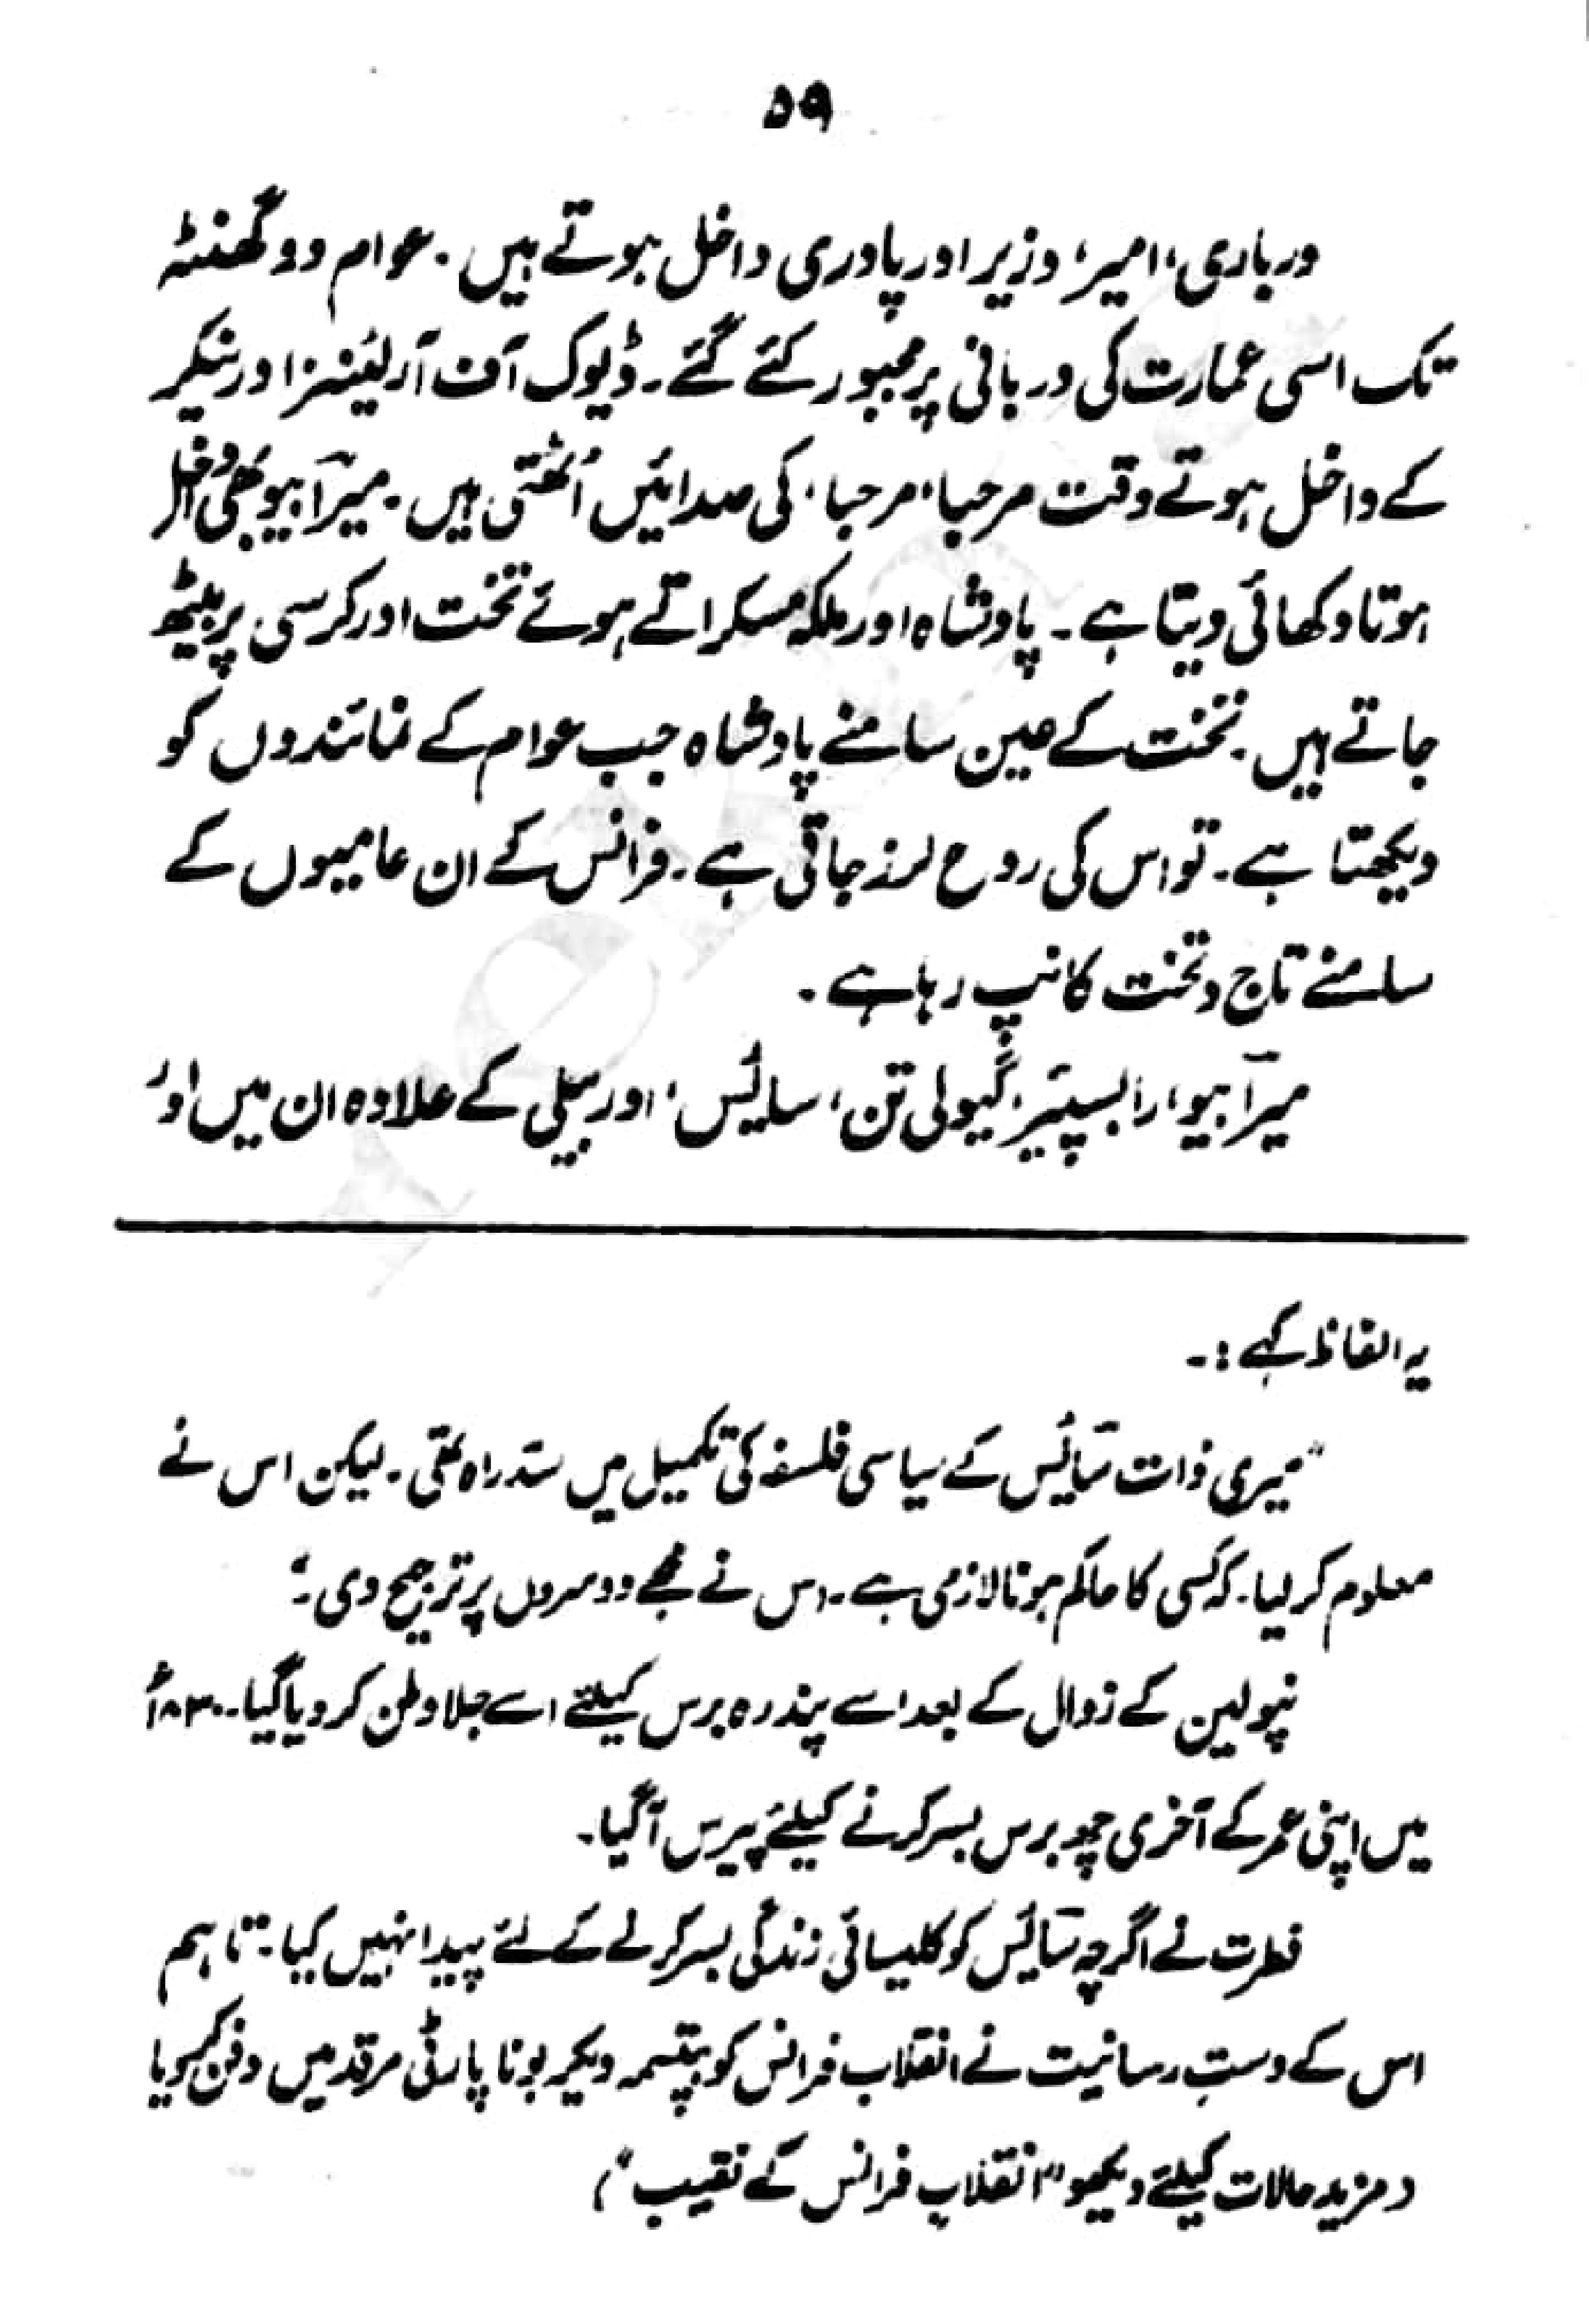 ۵۹
درباری، امیر، وزیر اور پادری داخل ہوتے ہیں۔ عوام دو گھنٹہ
تک اسی عمارت کی دربانی پر مجبور کئے گئے۔ ڈیوک آف آرلئینز اور نیکر
کے داخل ہوتے وقت مرحبا، مرحبا، کی صدائیں اُٹھتی ہیں۔ میرآبیو بھی داخل
ہوتا دکھائی دیتا ہے۔ پادشاہ اور ملکہ مسکراتے ہوئے تخت اور کرسی پر بیٹھ
جاتے ہیں۔ تخت کے عین سامنے پادشاہ جب عوام کے نمائندوں کو
دیکھتا ہے۔ تو اس کی روح لرز جاتی ہے۔ فرانس کے ان عامیوں کے
سامنے تاج و تخت کانپ رہا ہے۔
میرآبیو، رابسپئیر، گیولی تن، سائیس، اور بیلی کے علاوہ ان میں اور
یہ الفاظ کہے :۔
"میری ذات سائیس کے سیاسی فلسفہ کی تکمیل میں سدراہ تھی۔ لیکن اس نے
معلوم کر لیا۔ کہ کسی کا حاکم ہونا لازمی ہے۔ اس نے مجھے دوسروں پر ترجیح دی۔"
نپولین کے زوال کے بعد اسے پندرہ برس کیلئے اسے جلا وطن کر دیا گیا۔ ۱۸۳۰ء
میں اپنی عمر کے آخری چھ برس بسر کرنے کیلئے پیرس آگیا۔
فطرت نے اگرچہ سائیس کو کلیسائی زندگی بسر کرنے کے لئے پیدا نہیں کیا۔ تاہم
اس کے دستِ رسانیت نے انقلاب فرانس کو بپتسمہ دیکر بونا پارٹی مرقد میں دفن کر دیا
(مزید حالات کیلئے دیکھو "انقلاب فرانس کے نقیب")